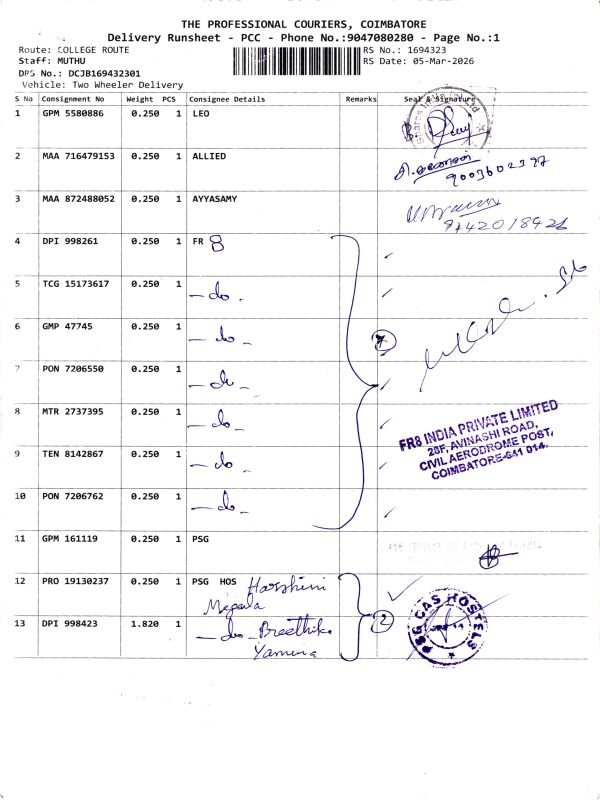 THE PROFESSIONAL COURIERS, COIMBATORE
Delivery Runsheet - PCC - Phone No.:9047080280 - Page No.:1
Route: COLLEGE ROUTE RS No.: 1694323
Staff: MUTHU RS Date: 05-Mar-2026
DRS No.: DCJB169432301
Vehicle: Two Wheeler Delivery
S No Consignment No Weight PCS Consignee Details Remarks Seal & Signature
1 GPM 5580886 0.250 1 LEO
2 MAA 716479153 0.250 1 ALLIED
9003602397
3 MAA 872488052 0.250 1 AYYASAMY
9142018426
4 DPI 998261 0.250 1 FR 8
5 TCG 15173617 0.250 1 - do -
6 GMP 47745 0.250 1 - do -
7
7 PON 7206550 0.250 1 - do -
8 MTR 2737395 0.250 1 - do -
FR8 INDIA PRIVATE LIMITED
28F, AVINASHI ROAD,
CIVIL AERODROME POST,
COIMBATORE-641 014.
9 TEN 8142867 0.250 1 - do -
10 PON 7206762 0.250 1 - do -
11 GPM 161119 0.250 1 PSG
12 PRO 19130237 0.250 1 PSG HOS Harshini
Megala
13 DPI 998423 1.820 1 - do - Preethika
Yamuna
2
PSG CAS HOSTELS